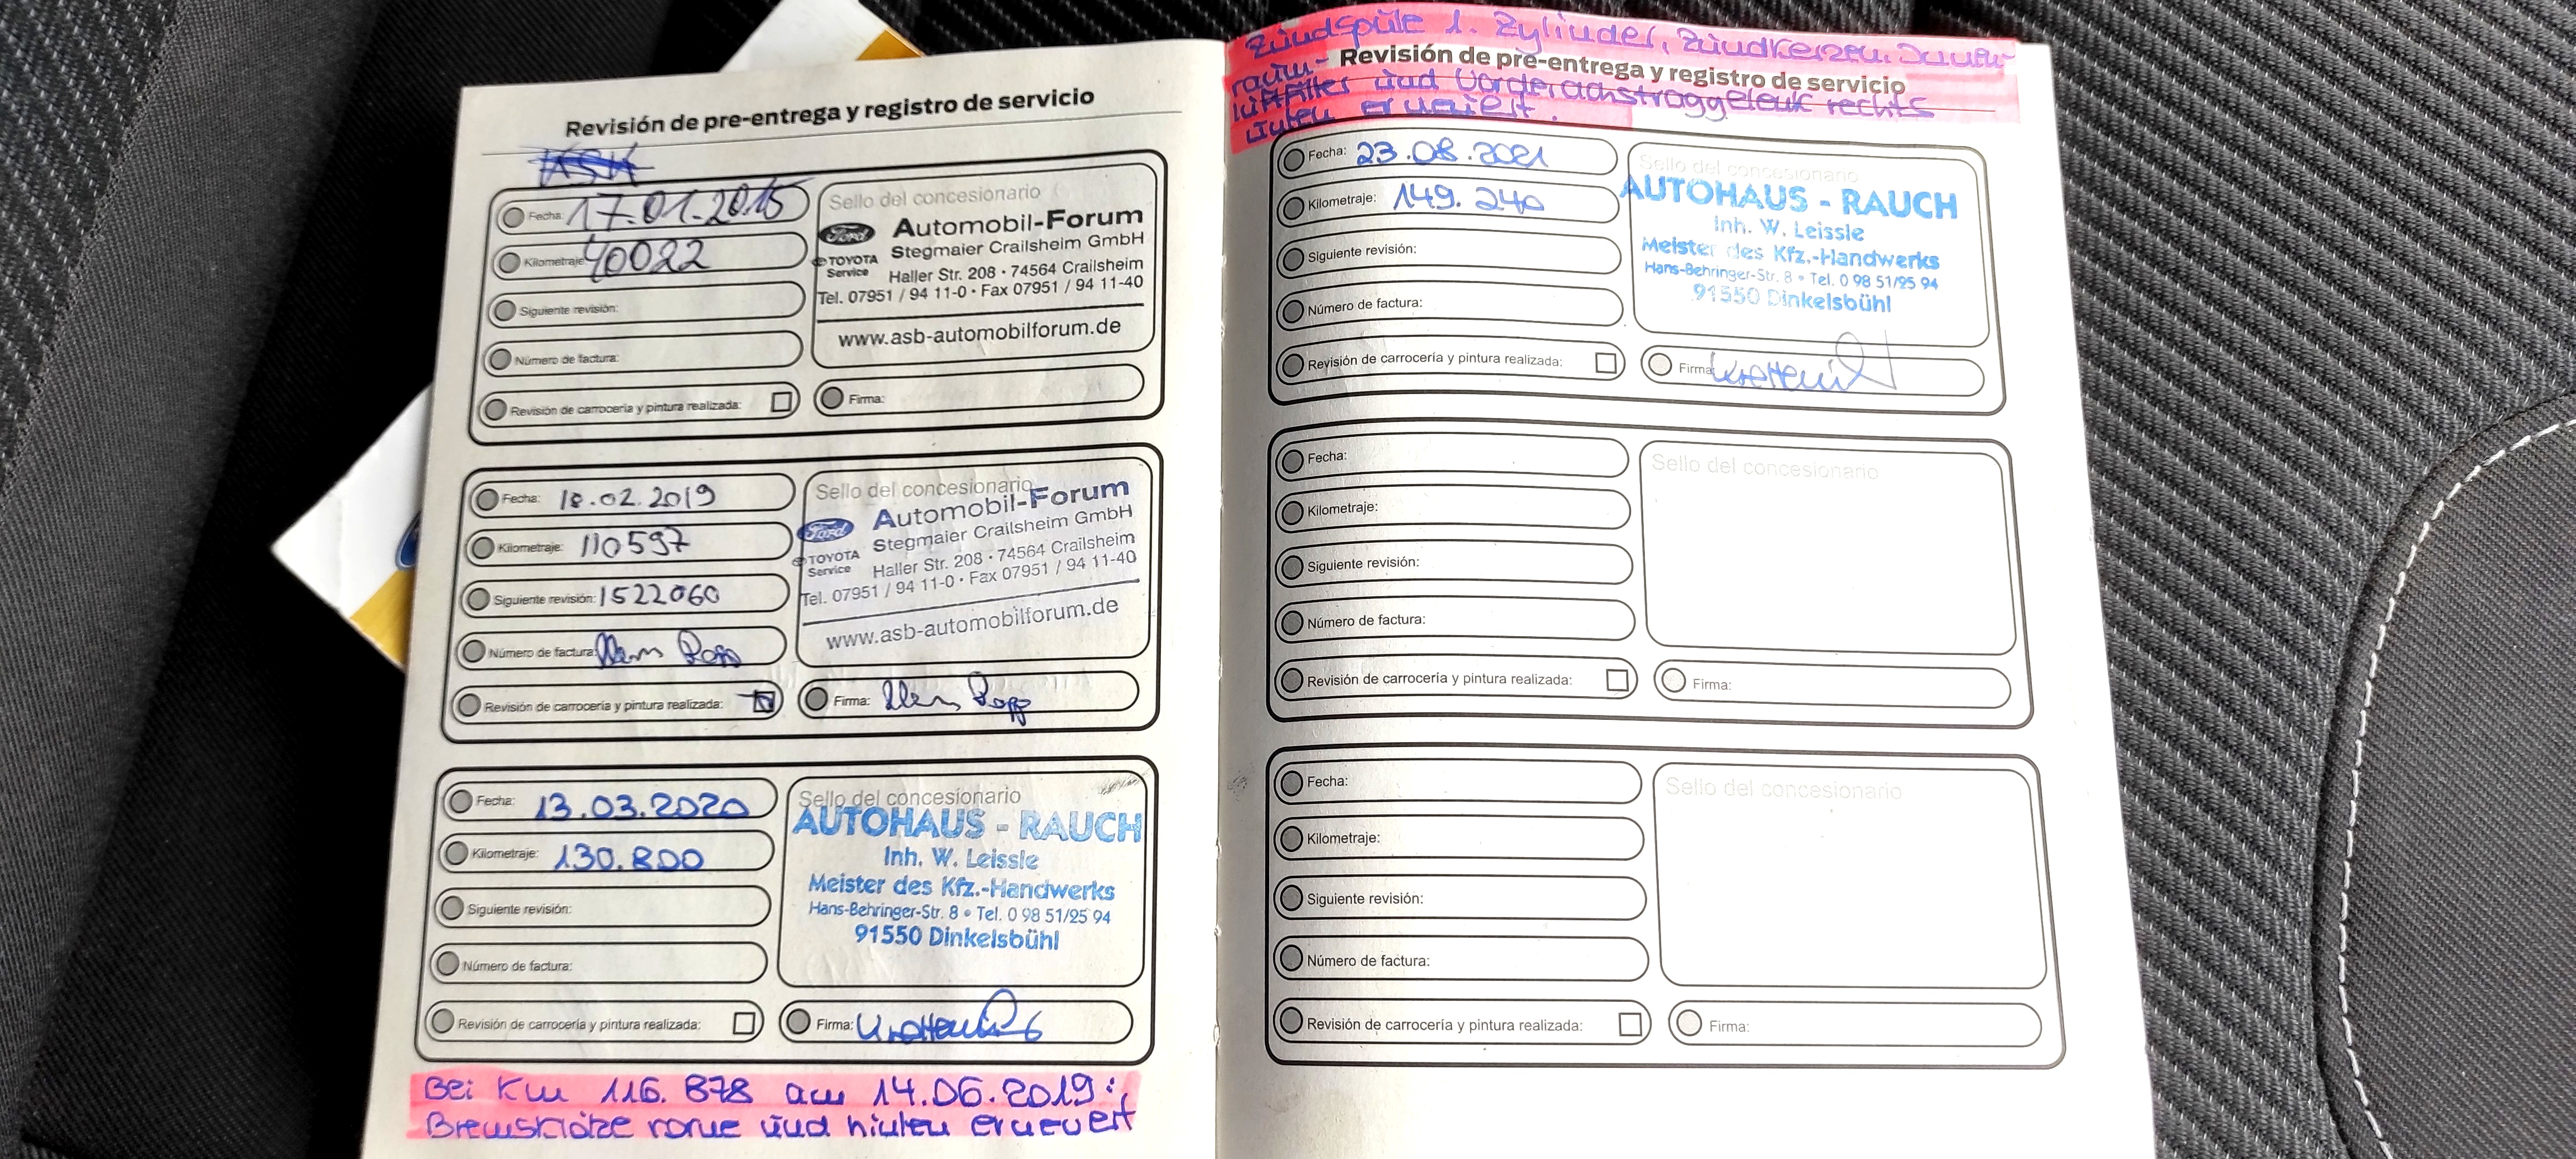 Revisión de pre-entrega y registro de servicio
Fecha: 17.01.2015
Kilometraje: 40022
Siguiente revisión:
Número de factura:
Revisión de carrocería y pintura realizada:
Sello del concesionario
Ford Automobil-Forum
TOYOTA Service Stegmaier Crailsheim GmbH
Haller Str. 208 · 74564 Crailsheim
Tel. 07951 / 94 11-0 · Fax 07951 / 94 11-40
www.asb-automobilforum.de
Firma:
Fecha: 18.02.2019
Kilometraje: 110597
Siguiente revisión: 1522060
Número de factura:
Revisión de carrocería y pintura realizada:
Sello del concesionario
Ford Automobil-Forum
TOYOTA Service Stegmaier Crailsheim GmbH
Haller Str. 208 · 74564 Crailsheim
Tel. 07951 / 94 11-0 · Fax 07951 / 94 11-40
www.asb-automobilforum.de
Firma:
Fecha: 13.03.2020
Kilometraje: 130.800
Siguiente revisión:
Número de factura:
Revisión de carrocería y pintura realizada:
Sello del concesionario
AUTOHAUS - RAUCH
Inh. W. Leissle
Meister des Kfz.-Handwerks
Hans-Behringer-Str. 8 • Tel. 0 98 51/25 94
91550 Dinkelsbühl
Firma:
Bei Km 116.878 am 14.06.2019:
Bremsklötze vorne und hinten erneuert
Zündspule 1. Zylinder, Zündkerzen, Innen-
raum-
Revisión de pre-entrega y registro de servicio
luftfilter und Vorderachstraggelenk rechts
unten erneuert.
Fecha: 23.08.2021
Kilometraje: 149.240
Siguiente revisión:
Número de factura:
Revisión de carrocería y pintura realizada:
Sello del concesionario
AUTOHAUS - RAUCH
Inh. W. Leissle
Meister des Kfz.-Handwerks
Hans-Behringer-Str. 8 • Tel. 0 98 51/25 94
91550 Dinkelsbühl
Firma:
Fecha:
Kilometraje:
Siguiente revisión:
Número de factura:
Revisión de carrocería y pintura realizada:
Sello del concesionario
Firma:
Fecha:
Kilometraje:
Siguiente revisión:
Número de factura:
Revisión de carrocería y pintura realizada:
Sello del concesionario
Firma: